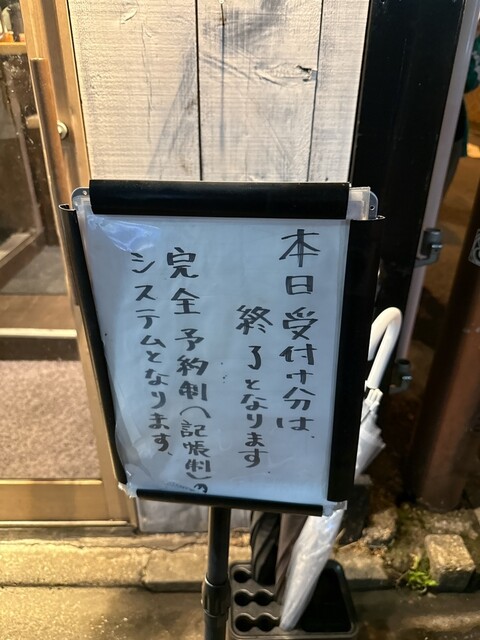 本日受付分は、
終了となります
完全予約制(記帳制)の
システムとなります。